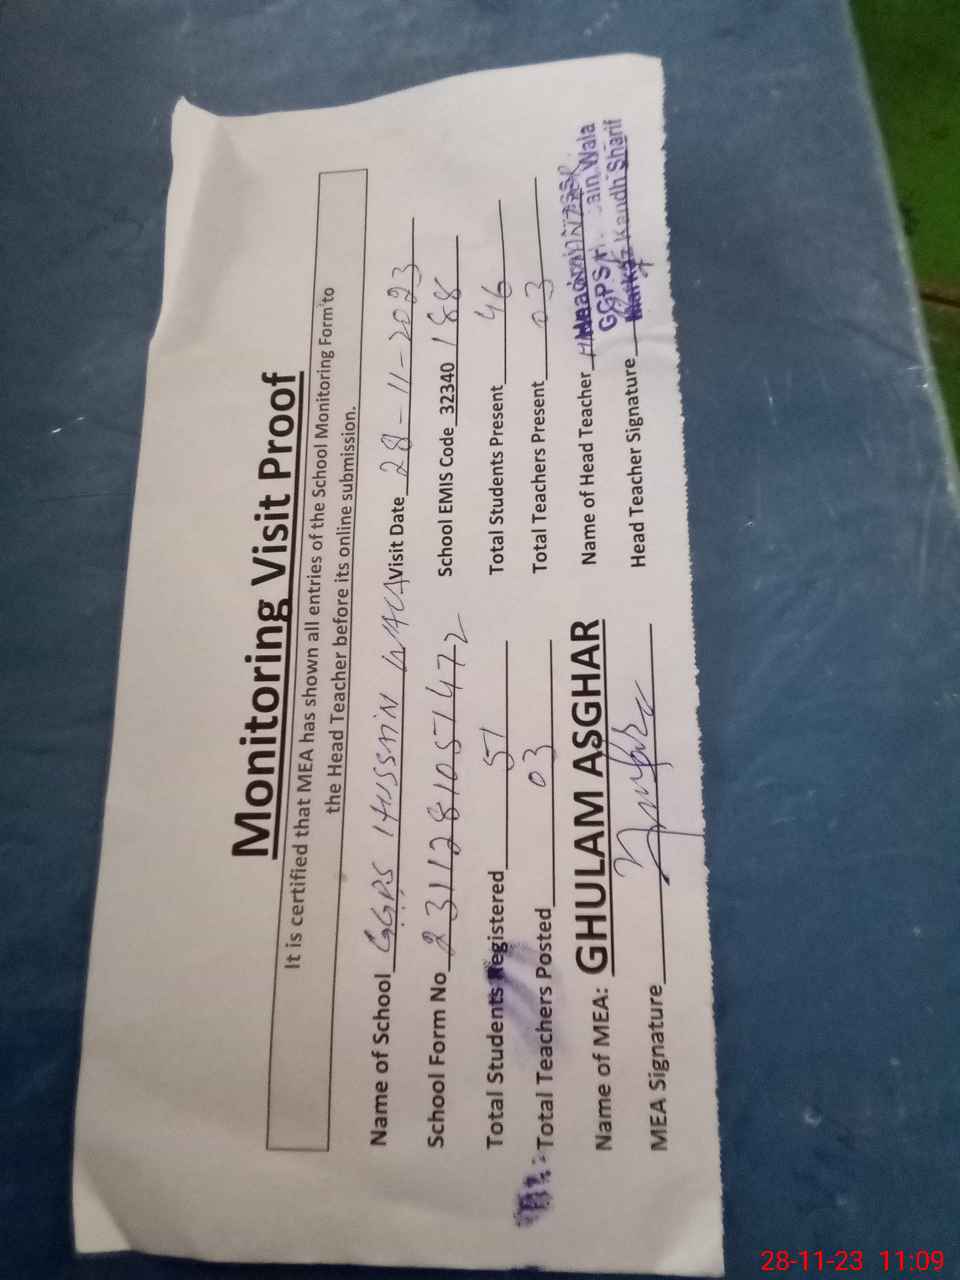 Monitoring Visit Proof
It is certified that MEA has shown all entries of the School Monitoring Form to
the Head Teacher before its online submission.
Name of School GGPS HUSSAIN WALA Visit Date 28-11-2023
School Form No 2311281051472 School EMIS Code 32340188
Total Students Registered 51 Total Students Present 46
Total Teachers Posted 03 Total Teachers Present 03
Name of MEA: GHULAM ASGHAR Name of Head Teacher
GGPS ain Wala
MEA Signature Head Teacher Signature
Markaz Kandh Sharif
28-11-23 11:09